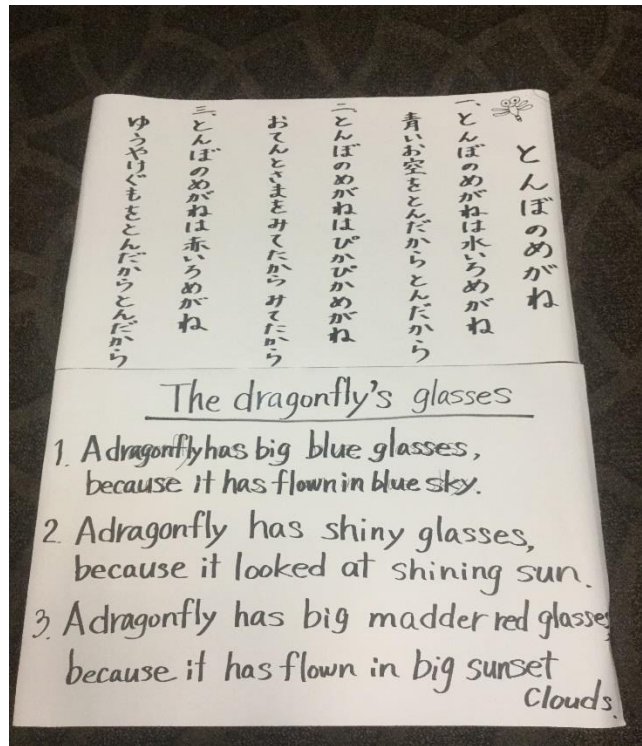 とんぼのめがね
一、とんぼのめがねは水いろめがね
青いお空をとんだから とんだから
二、とんぼのめがねはぴかぴかめがね
おてんとさまをみてたから みてたから
三、とんぼのめがねは赤いろめがね
ゆうやけぐもをとんだからとんだから
The dragonfly's glasses
1. A dragonfly has big blue glasses,
because it has flown in blue sky.
2. A dragonfly has shiny glasses,
because it looked at shining sun.
3. A dragonfly has big madder red glasses,
because it has flown in big sunset
Clouds.